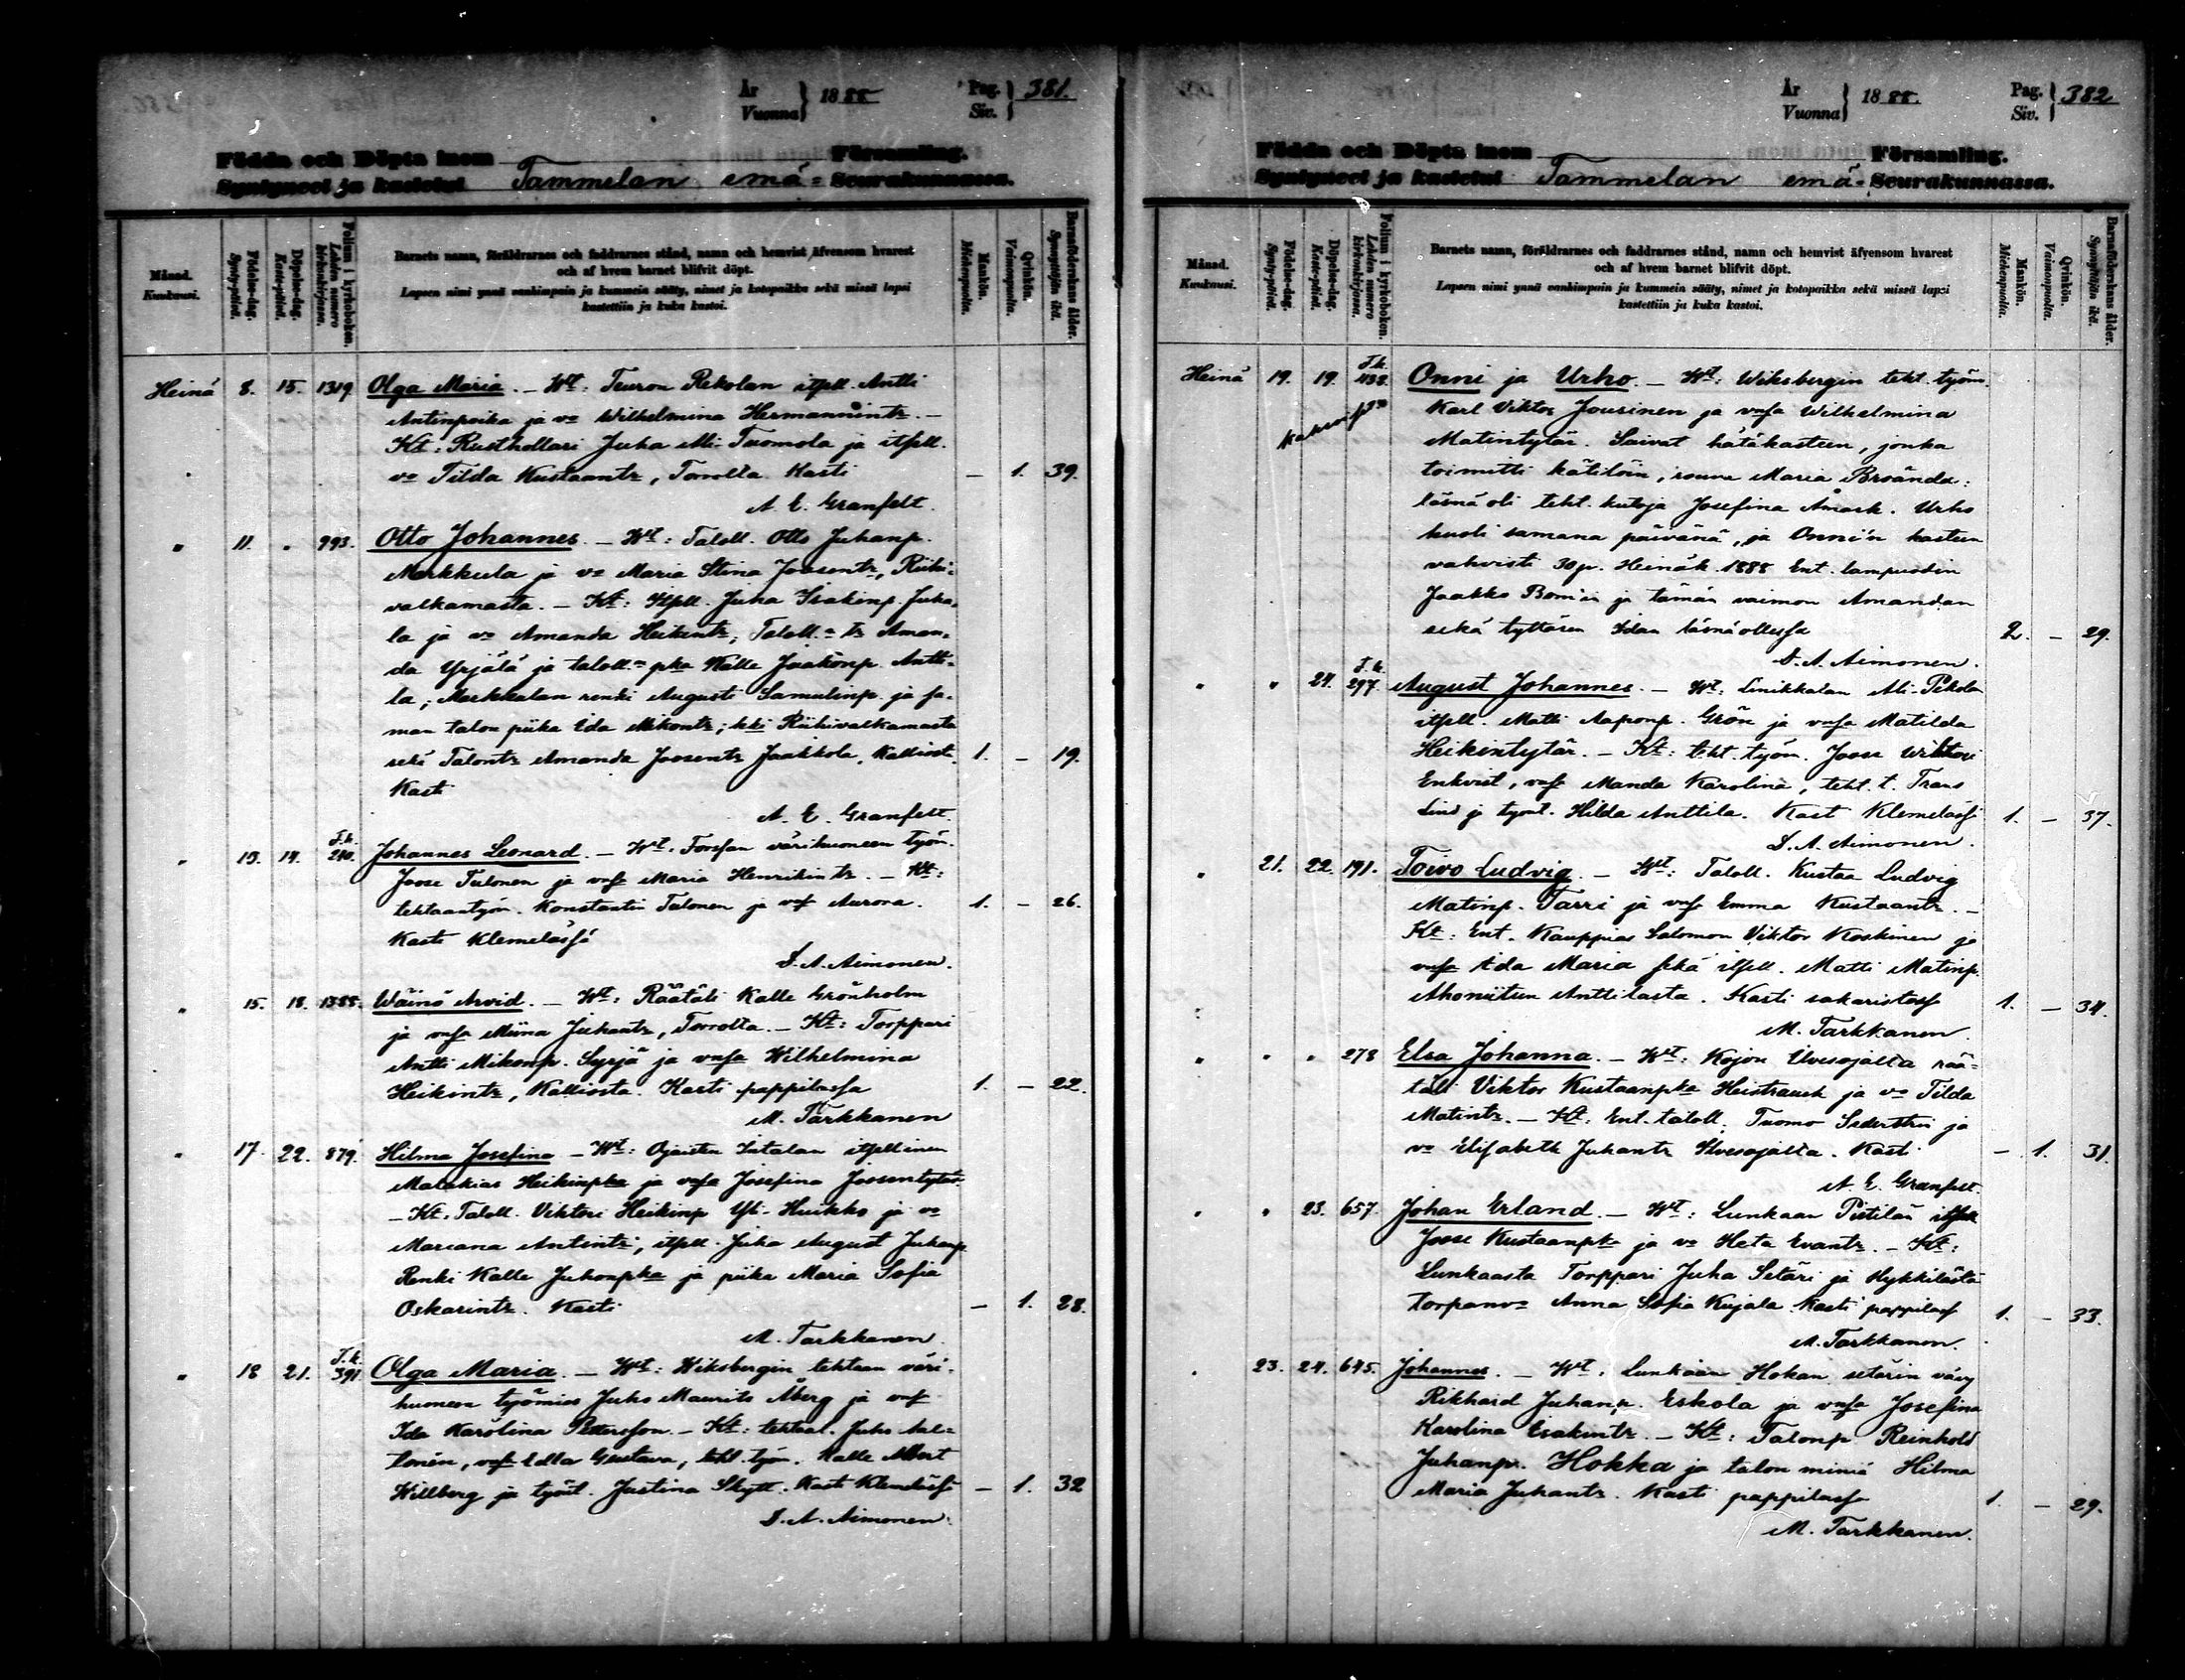 År
Vuonna } 1888 Pag.
Siv. } 381.
Födda och Döpta inom Församling.
Syntyneet ja kastetut Tammelan emä- Seurakunnassa.
Månad.
Kuukausi.
Födelse-dag.
Synty-päivä.
Döpelse-dag.
Kaste-päivä.
Folium i kyrkoboken.
Lehden numero kirkonkirjassa.
Barnets namn, föräldrarnes och faddrarnes stånd, namn och hemvist äfvensom hvarest
och af hvem barnet blifvit döpt.
Lapsen nimi ynnä vanhimpain ja kummein sääty, nimet ja kotopaikka sekä missä lapsi
kastettiin ja kuka kastoi.
Mankön.
Miehenpuolia.
Qvinkön.
Vaimonpuolia.
Barnaföderskans ålder.
Synnyttäjän ikä.
Heinä 8. 15. 1319 Olga Maria. — Wt: Teuron Rekolan itsell. Antti
Antinpoika ja vo Wilhelmina Hermannintr. —
Kt: Rusthollari Juha Ali-Tuomola ja itsell.
vo Tilda Kustaantr, Torrolta. Kasti — 1. 39.
A. E. Granfelt.
" 11. " 993. Otto Johannes. — Wt: Taloll. Otto Juhanp.
Markkula ja vo Maria Stina Joosentr, Riihi-
valkamasta. — Kt: Itsell. Juha Isakinp. Juha-
la ja vo Amanda Heikintr, Taloll.- tr Aman-
da Yrjälä ja taloll.- pka Kalle Jaakonp. Antti-
la; Markkulan renki Augusti Samulinp. ja sa-
man talon piika Ida Mikontr; kki Riihivalkamasta
sekä Talontr Amanda Joosentr Jaakkola, Kalliost. 1. — 19.
Kasti
A. E. Granfelt.
" 13. 14. T.k. 240. Johannes Leonard. — Wt: Forssan värihuoneen työm.
Joose Tulonen ja vsa Maria Henrikintr. — Kt:
tehtaantyöm. Konstantin Talonen ja vsa Aurora. 1. — 26.
Kasti Klemelässä
D. A. Aimonen.
" 15. 18. 1388. Wäinö Arvid. — Wt: Räätäli Kalle Grönholm
ja vsa Miina Juhantr, Torrolta. — Kt: Torppari
Antti Mikonp. Syrjä ja vsa Wilhelmina
Heikintr, Kalliosta. Kasti pappilassa 1. — 22.
M. Tarkkanen
" 17. 22. 879. Hilma Josefina — Wt: Ojaisten Intalan itsellinen
Malakias Heikinpka ja vsa Josefina Joosentytär.
— Kt: Taloll. Viktori Heikinp Yli-Huikko ja vo
Mariana Antintr, itsell. Juha August Juhanp.
Renki Kalle Juhonpka ja piika Maria Sofia
Oskarintr. Kasti — 1. 28.
M. Tarkkanen
" 18 21. T.k. 391 Olga Maria. — Wt: Wiksbergin tehtaan väri-
huoneen työmies Juho Maurits Åberg ja vsa
Ida Karolina Pettersson. — Kt: tehtaal. Juho Aal-
tonen, vsa Edla Gustava, teht. työm. Kalle Albert
Willberg ja työnt. Justina Skytt. Kasti Klemelässä — 1. 32
D. A. Aimonen.
År
Vuonna } 1888. Pag.
Siv. } 382
Födda och Döpta inom Församling.
Syntyneet ja kastetut Tammelan emä- Seurakunnassa.
Månad.
Kuukausi.
Födelse-dag.
Synty-päivä.
Döpelse-dag.
Kaste-päivä.
Folium i kyrkoboken.
Lehden numero kirkonkirjassa.
Barnets namn, föräldrarnes och faddrarnes stånd, namn och hemvist äfvensom hvarest
och af hvem barnet blifvit döpt.
Lapsen nimi ynnä vanhimpain ja kummein sääty, nimet ja kotopaikka sekä missä lapsi
kastettiin ja kuka kastoi.
Mankön.
Miehenpuolia.
Qvinkön.
Vaimonpuolia.
Barnaföderskans ålder.
Synnyttäjän ikä.
Heinä 19. 19. T.k. Onni ja Urho. — Wt: Wiksbergin teht. työm.
Karl Viktor Jousinen ja vsa Wilhelmina
Matintytär. Saivat hätäkasteen, jonka
toimitti kätilöin, rouva Maria Broända:
läsnä oli teht. kutoja Josefina Åmark. Urho
kuoli samana päivänä, ja Onni'n kasteen
vahvisti 30 p. Heinäk. 1888 Ent. lampuodin
Jaakko Bom'in ja tämän vaimon Amandan
sekä tyttären Idan läsnäollessa 2. — 29.
D. A. Aimonen.
" " 24. T.k. 297. August Johannes. — Wt: Linikkalan Ali-Pekola
itsell. Matti Aaponp. Grön ja vsa Matilda
Heikintytär. — Kt: teht. työm. Joose Wiktori
Enkvist, vsa Manda Karolina, teht. t. Frans
Lind ja työnt. Hilda Anttila. Kast Klemelässä 1. — 37.
D. A. Aimonen.
" 21. 22. 191. Toivo Ludvig. — Wt: Taloll. Kustaa Ludvig
Matinp. Tarri ja vsa Emma Kustaantr. —
Kt: Ent. Kauppias Salomon Viktor Koskinen ja
vsa Ida Maria sekä itsell. Matti Matinp.
Ahoniitun Anttilasta. Kasti sakaristossa 1. — 34.
M. Tarkkanen.
" " " 278 Elsa Johanna. — Wt: Kojon Ilvesojalta rää-
täli Viktor Kustaanpka Heistrauch ja vo Tilda
Matintr. — Kt: Ent. taloll. Tuomo Sederström ja
vo Elisabeth Juhantr Ilvesojalta. Kasti — 1. 31.
A. E. Granfelt.
" " 23. 657. Johan Erland. — Wt: Lunkaan Pietilän itsell
Joose Kustaanpka ja vo Heta Evantr. — Kt:
Lunkaasta Torppari Juha Setäri ja Hykkilästä
torpanvo Anna Sofia Kujala. Kasti pappilassa 1. — 33.
M. Tarkkanen.
" 23. 24. 645. Johannes. — Wt: Lunkaan Hokan setärin vävy
Rikhard Juhanp. Eskola ja vsa Josefina
Karolina Esakintr. — Kt: Talonp Reinhold
Juhanp. Hokka ja talon miniä Hilma
Maria Juhantr. Kasti pappilassa 1. — 29.
M. Tarkkanen.